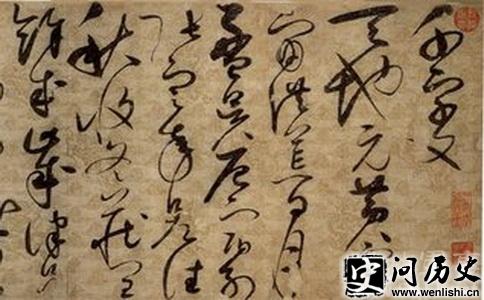 千字文
天地元黄宇
宙洪荒日月
盈昃辰宿列
张寒来暑往
秋收冬藏闰
餘成歲律吕
史问历史
www.wenlishi.cn